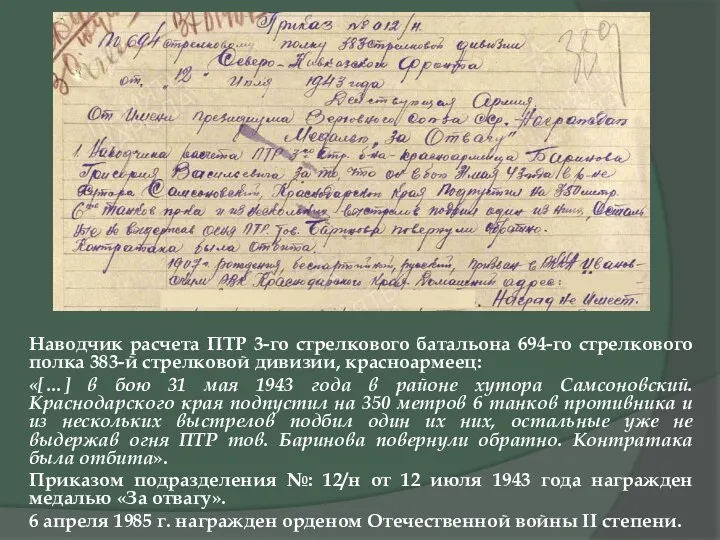 Приказ № 012/н.
По 694 стрелковому полку 383 стрелковой дивизии
Северо-Кавказского Фронта
от. "12" Июля 1943 года
Действующая Армия.
От Имени Президиума Верховного Союза ССР. Награждаю
Медалью "За Отвагу"
1. Наводчика расчета ПТР 3го стр. б-на - красноармейца Баринова
Григория Васильевича за то, что он в бою 31 мая 43 года в р-не
Хутора Самсоновский, Краснодарского Края Подпустил на 350 метр.
6ть танков пр-ка и из нескольких выстрелов подбил один из них, Осталь
не выдержав огня ПТР. тов. Баринова повернули обратно.
Контратака была отбита.
1907 г. рождения, беспартийный, русский, призван в РККА
РВК Краснодарского Края. Домашний адрес:
Наград не имеет.
359
Наводчик расчета ПТР 3-го стрелкового батальона 694-го стрелкового
полка 383-й стрелковой дивизии, красноармеец:
«[…] в бою 31 мая 1943 года в районе хутора Самсоновский.
Краснодарского края подпустил на 350 метров 6 танков противника и
из нескольких выстрелов подбил один их них, остальные уже не
выдержав огня ПТР тов. Баринова повернули обратно. Контратака
была отбита».
Приказом подразделения №: 12/н от 12 июля 1943 года награжден
медалью «За отвагу».
6 апреля 1985 г. награжден орденом Отечественной войны II степени.